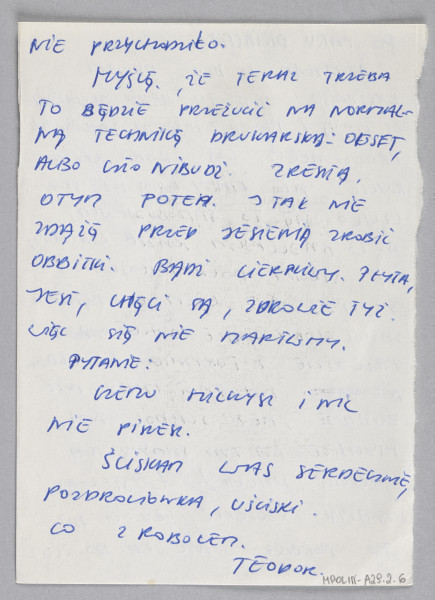 NIE PRZYCHODZIŁO.
MYŚLĘ, ŻE TERAZ TRZEBA
TO BĘDZIE PRZEŻUCIĆ NA NORMAL-
NĄ TECHNIKĘ DRUKARSKĄ: OFSET,
ALBO COŚ NIBUDŹ. ZRESZTĄ,
O TYM POTEM. I TAK NIE
ZDĄŻĘ PRZED JESIENIĄ ZROBIĆ
ODBITKI. BĄDŹ CIERPLIWY. PŁYTA,
JEST, CHĘCI SĄ, ZDROWIE TYŻ.
WIĘC SIĘ NIE MARTWMY.
PYTANIE:
CZEMU MILCZYSZ I NIC
NIE PISZESZ.
ŚCISKAM WAS SERDECZNIE,
POZDROWIONKA, UŚCISKI.
CO Z ROBOTĄ.
TEODOR.
MPOLIII-A29.2.6